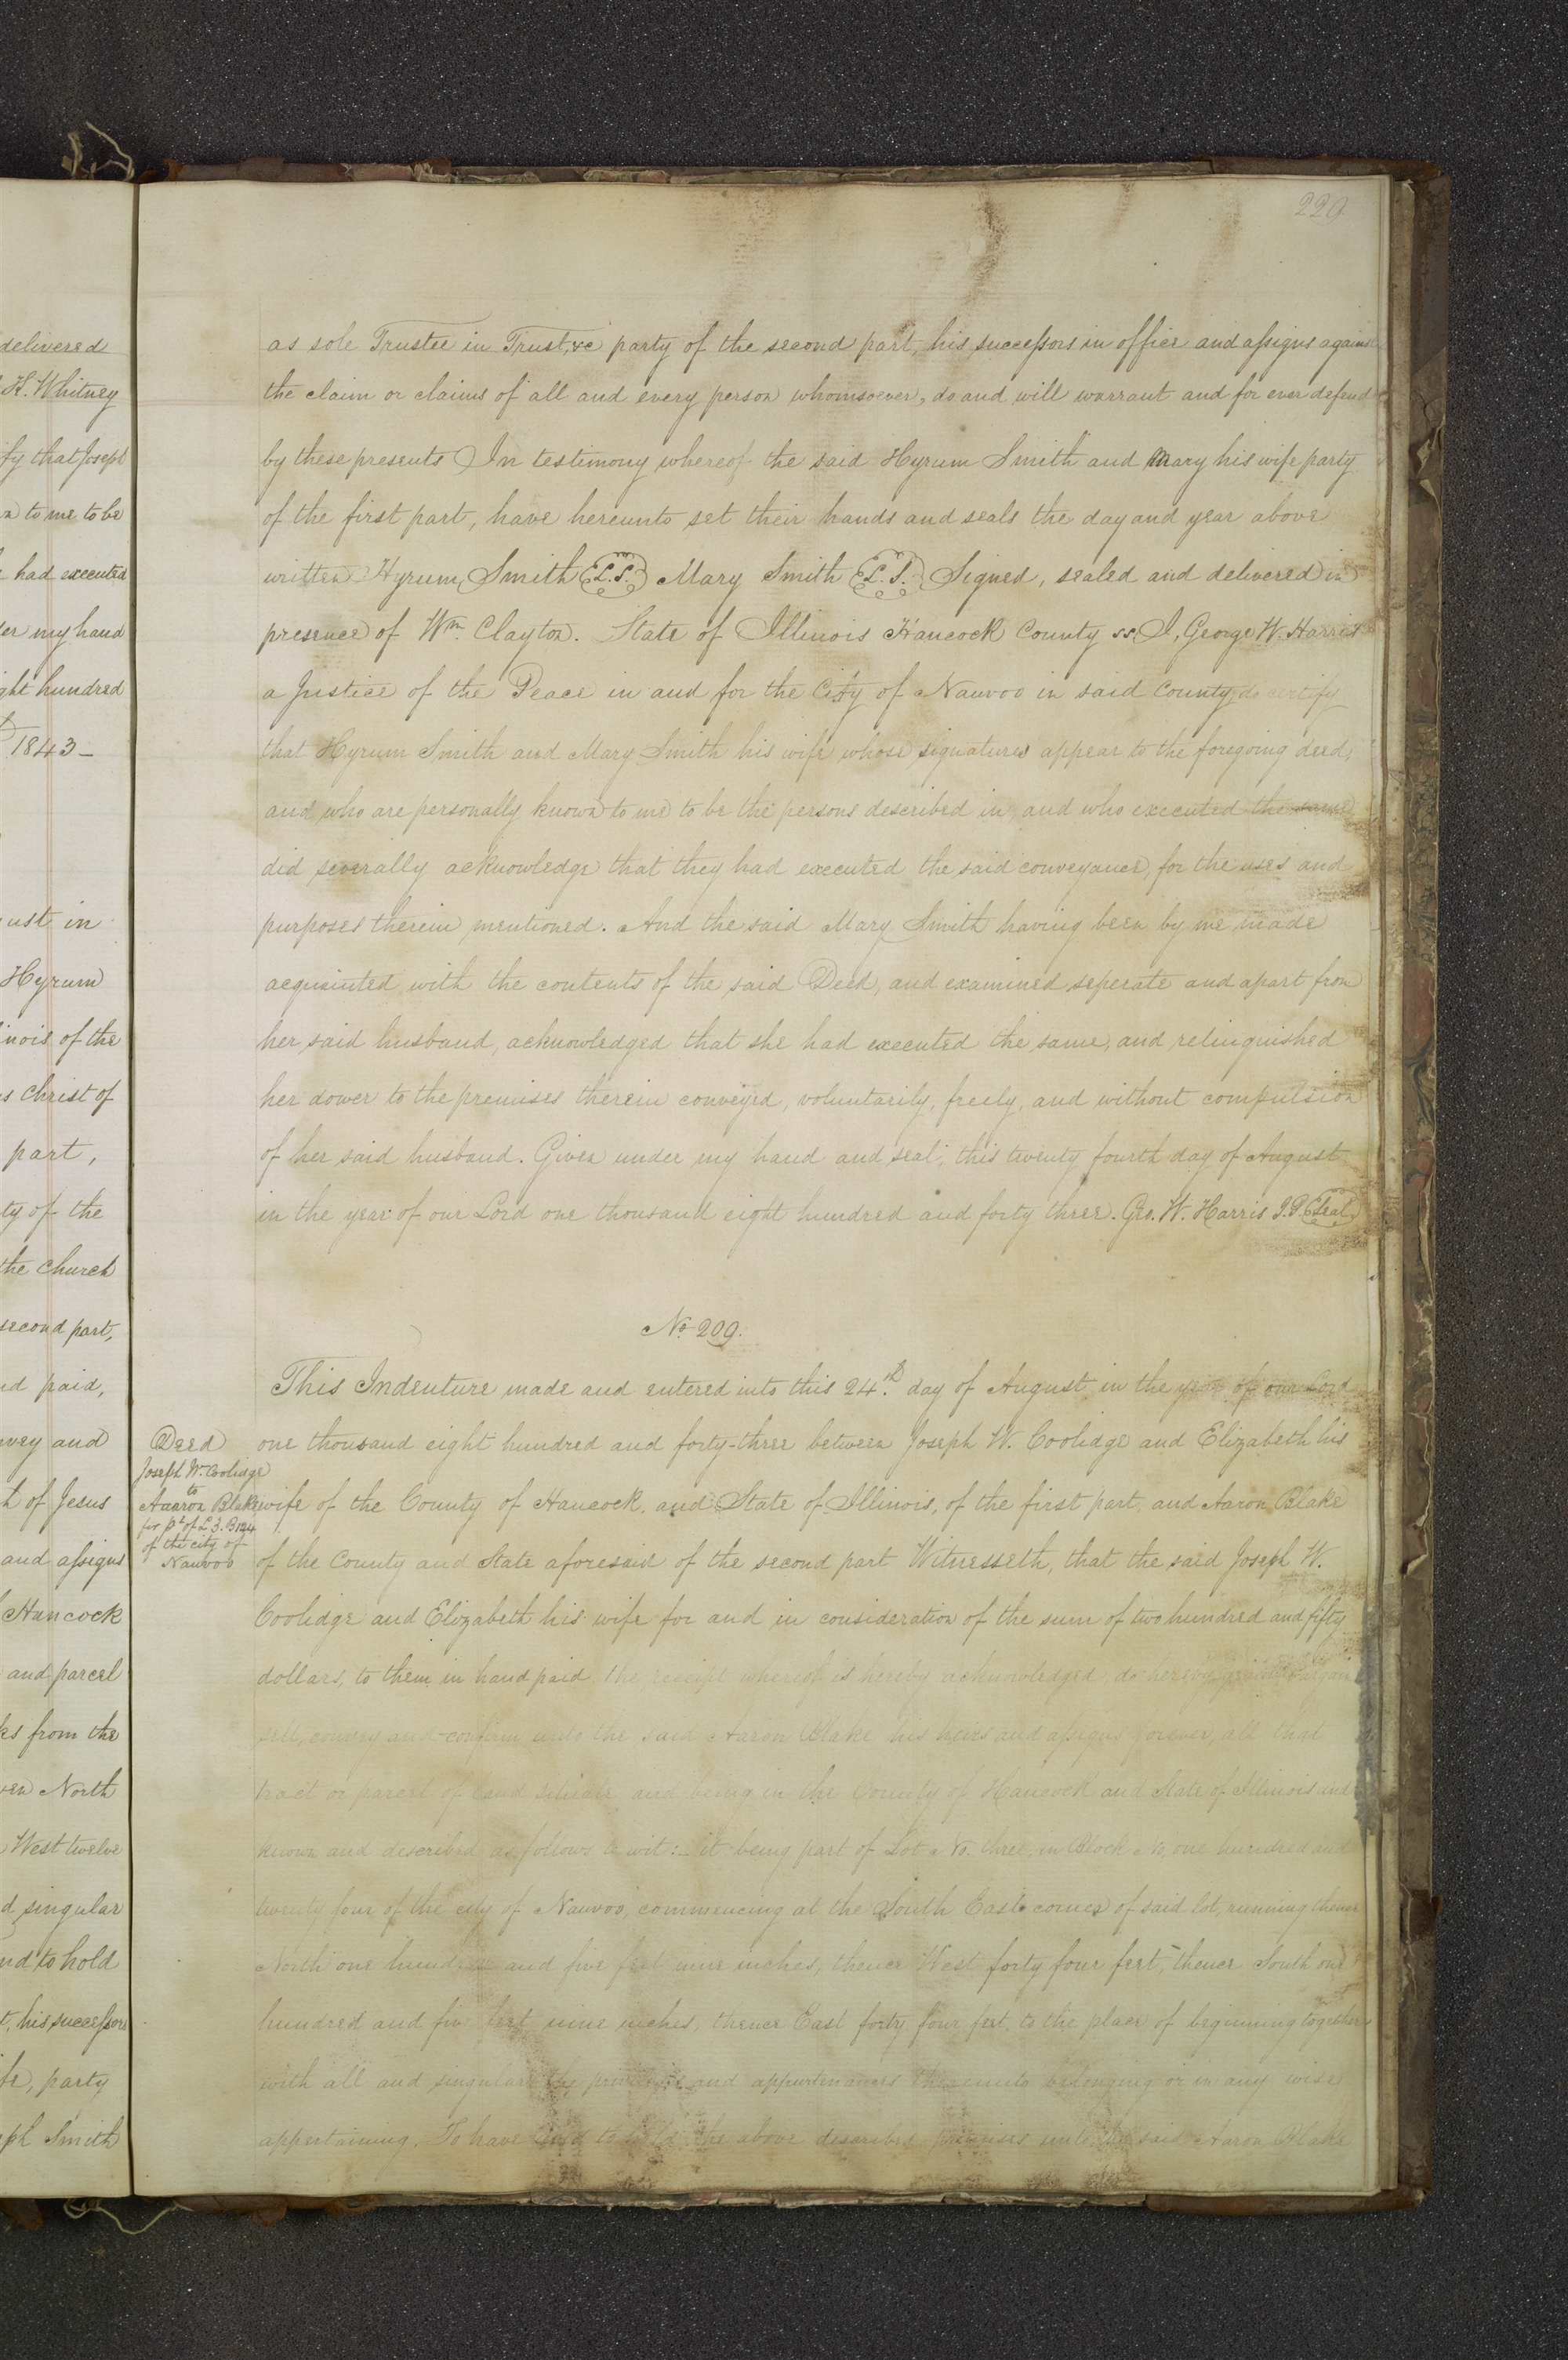 229
delivered
H. Whitney
fy that Joseph
to me to be
had executed
my hand
ght hundred
1843 -
ust in
Hyrum
inois of the
Christ of
part,
ty of the
the Church
second part,
paid,
and
of Jesus
and assigns
Hancock
and parcel
from the
North
West twelve
singular
to hold
his successors
party
Smith
as sole Trustee in Trust, &c party of the second part, his successors in office and assigns against
the claim or claims of all and every person whomsoever, do and will warrant and for ever defend
by these presents In testimony whereof the said Hyrum Smith and Mary his wife party
of the first part, have hereunto set their hands and seals the day and year above
written Hyrum Smith L.S. Mary Smith L.S. Signed, sealed and delivered in
presence of Wm. Clayton. State of Illinois Hancock County ss. I, George W. Harris
a Justice of the Peace in and for the City of Nauvoo in said County do certify
that Hyrum Smith and Mary Smith his wife whose signatures appear to the foregoing deed,
and who are personally known to me to be the persons described in, and who executed the same
did severally acknowledge that they had executed the said conveyance, for the uses and
purposes therein mentioned. And the said Mary Smith having been by me made
acquainted with the contents of the said Deed, and examined seperate and apart from
her said husband, acknowledged that she had executed the same, and relinquished
her dower to the premises therein conveyed, voluntarily, freely, and without compulsion
of her said husband. Given under my hand and seal, this twenty fourth day of August
in the year of our Lord one thousand eight hundred and forty three. Geo. W. Harris J.P. Seal
No. 209.
This Indenture made and entered into this 24th. day of August in the year of our Lord
Deed
Joseph W. Coolidge
to
Aaaron Blake
for pt of L 3. B 124
of the city of
Nauvoo
one thousand eight hundred and forty-three between Joseph W. Coolidge and Elizabeth his
wife of the County of Hancock, and State of Illinois, of the first part, and Aaron Blake
of the County and State aforesaid of the second part Witnesseth, that the said Joseph W.
Coolidge and Elizabeth his wife for and in consideration of the sum of two hundred and fifty
dollars, to them in hand paid the receipt whereof is hereby acknowledged, do hereby bargain
sell, convey and confirm unto the said Aaron Blake his heirs and assigns forever, all that
tract or parcel of land situate and being in the County of Hancock and State of Illinois and
known and described as follows to wit: - it being part of Lot No. three, in Block No, one hundred and
twenty four of the city of Nauvoo, commencing at the South East corner of said lot, running thence
North one hundred and five feet nine inches, thence West forty four feet, thence South one
hundred and five feet nine inches, thence East forty four feet, to the place of beginning together
with all and singular the and appurtenances thereunto belonging or in any wise
appertaining. To have and to hold the above described premises unto the said Aaron Blake